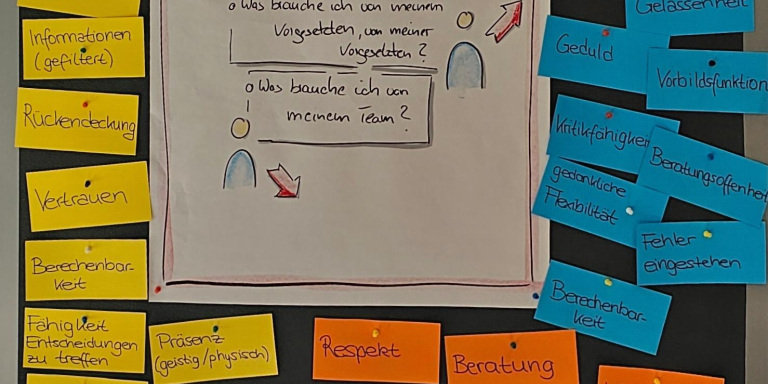 o Was brauche ich von meinem
Vorgesetzten, von meiner
Vorgesetzten?
o Was bauche ich von
meinem Team?
Informationen
(gefiltert)
Rückendeckung
Vertrauen
Berechenbar-
keit
Fähigkeit
Entscheidungen
zu treffen
Präsenz
(geistig/physisch)
Respekt
Beratung
Gelassenheit
Geduld
Vorbildsfunktion
Kritikfähigkeit
Beratungsoffenheit
gedankliche
Flexibilität
Fehler
eingestehen
Berechenbar-
keit